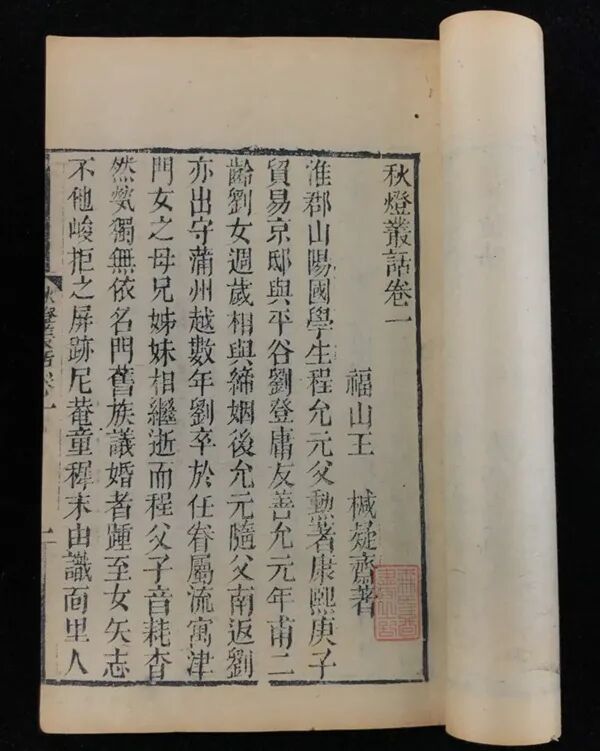 秋燈叢話卷一
福山王 椷凝齋著
淮郡山陽國學生程允元父勲著康熙庚子
貿易京邸與平谷劉登庸友善允元年甫二
齡劉女週歲相與締姻後允元隨父南返劉
亦出守蒲州越數年劉卒於任眷屬流寓津
門女之母兄姊妹相繼逝而程父子音耗杳
然煢獨無依名門舊族議婚者踵至女矢志
不他峻拒之屏跡尼菴童稺末由識面里人